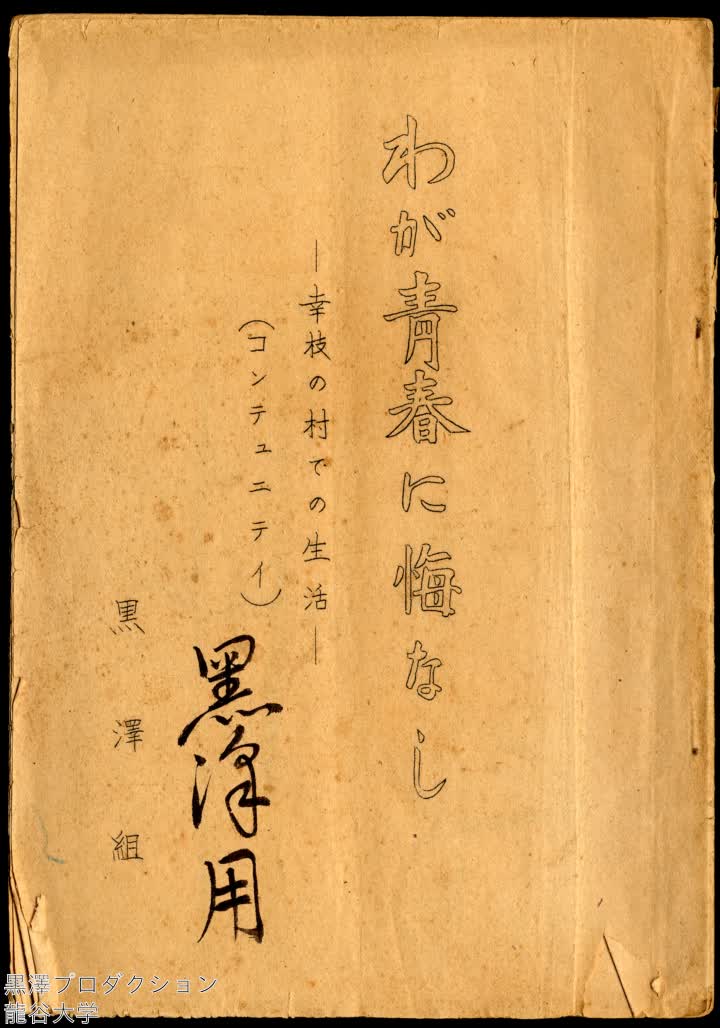 わが青春に悔なし
―幸枝の村での生活―
(コンテュニテイ)
黒澤用
黒澤組
黒澤プロダクション
龍谷大学